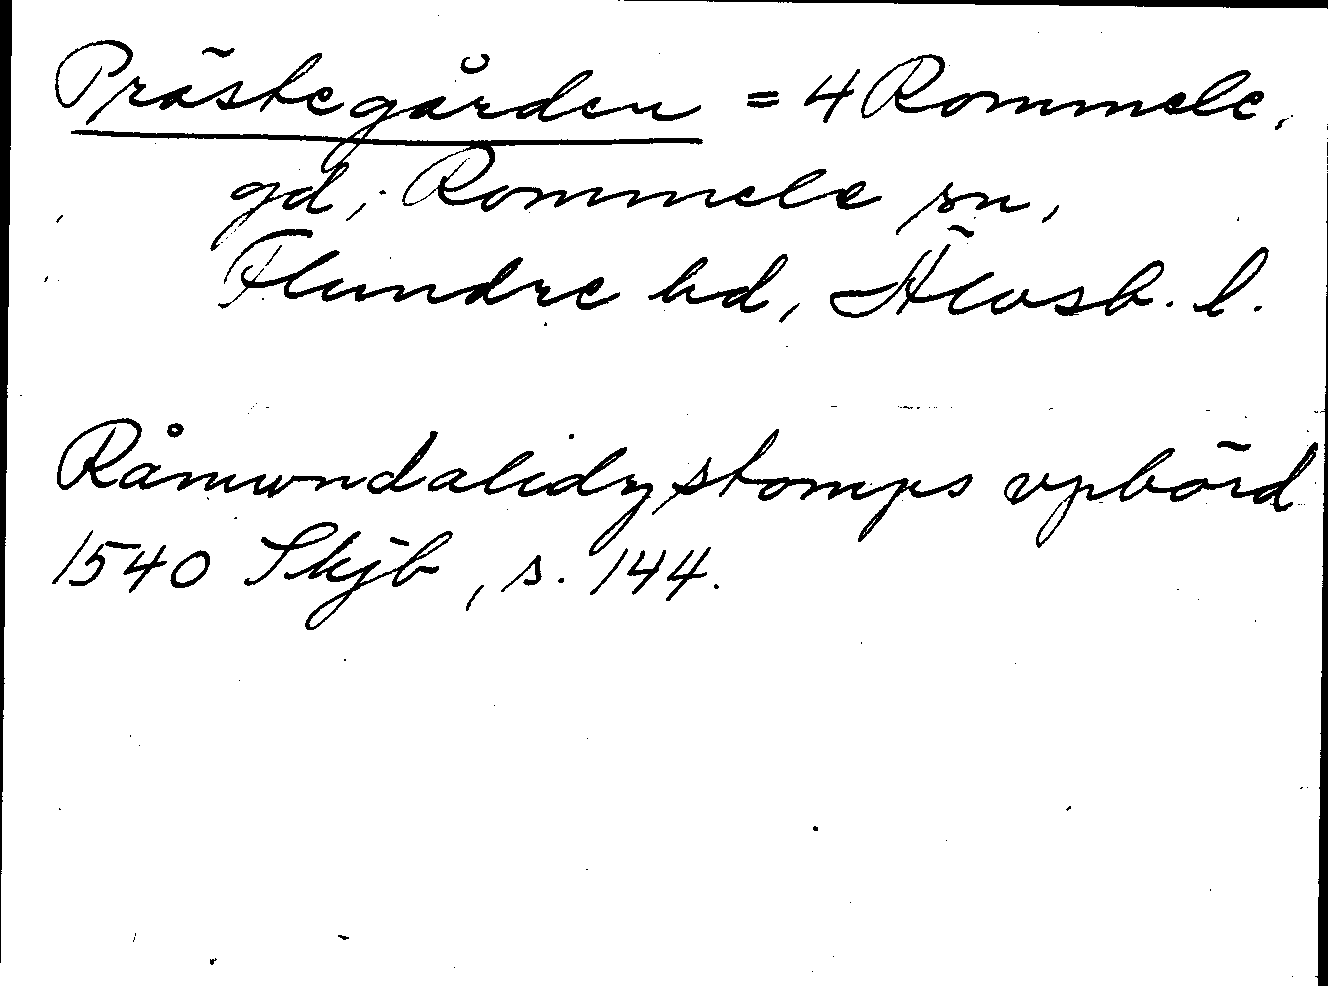 Prästegården = 4 Rommele,
gd, Rommele sn,
Flundre hd, Älvsb. l.
Råmwndalidz stomps vpbörd
1540 Skjb, s. 144.